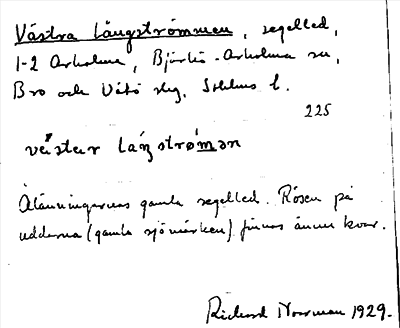 Västra Långströmmen, segelled,
1-2 Arholma, Björkö-Arholma sn,
Bro och Vätö skg. Sthlms l.
225
vɛ́stɐr láŋstrømən
Ålänningarnas gamla segelled. Rösen på
uddarna (gamla sjömärken) finnas ännu kvar.
Rickard Norrman 1929.